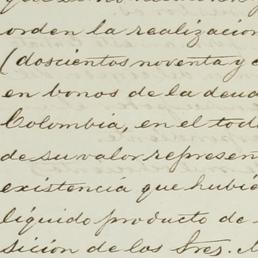 orden la realizacion
(doscientos noventa y c
en bonos de la deud
Colombia, en el tod
de su valor represen
existencia que hubie
líquido producto de
sición de los Sres. M